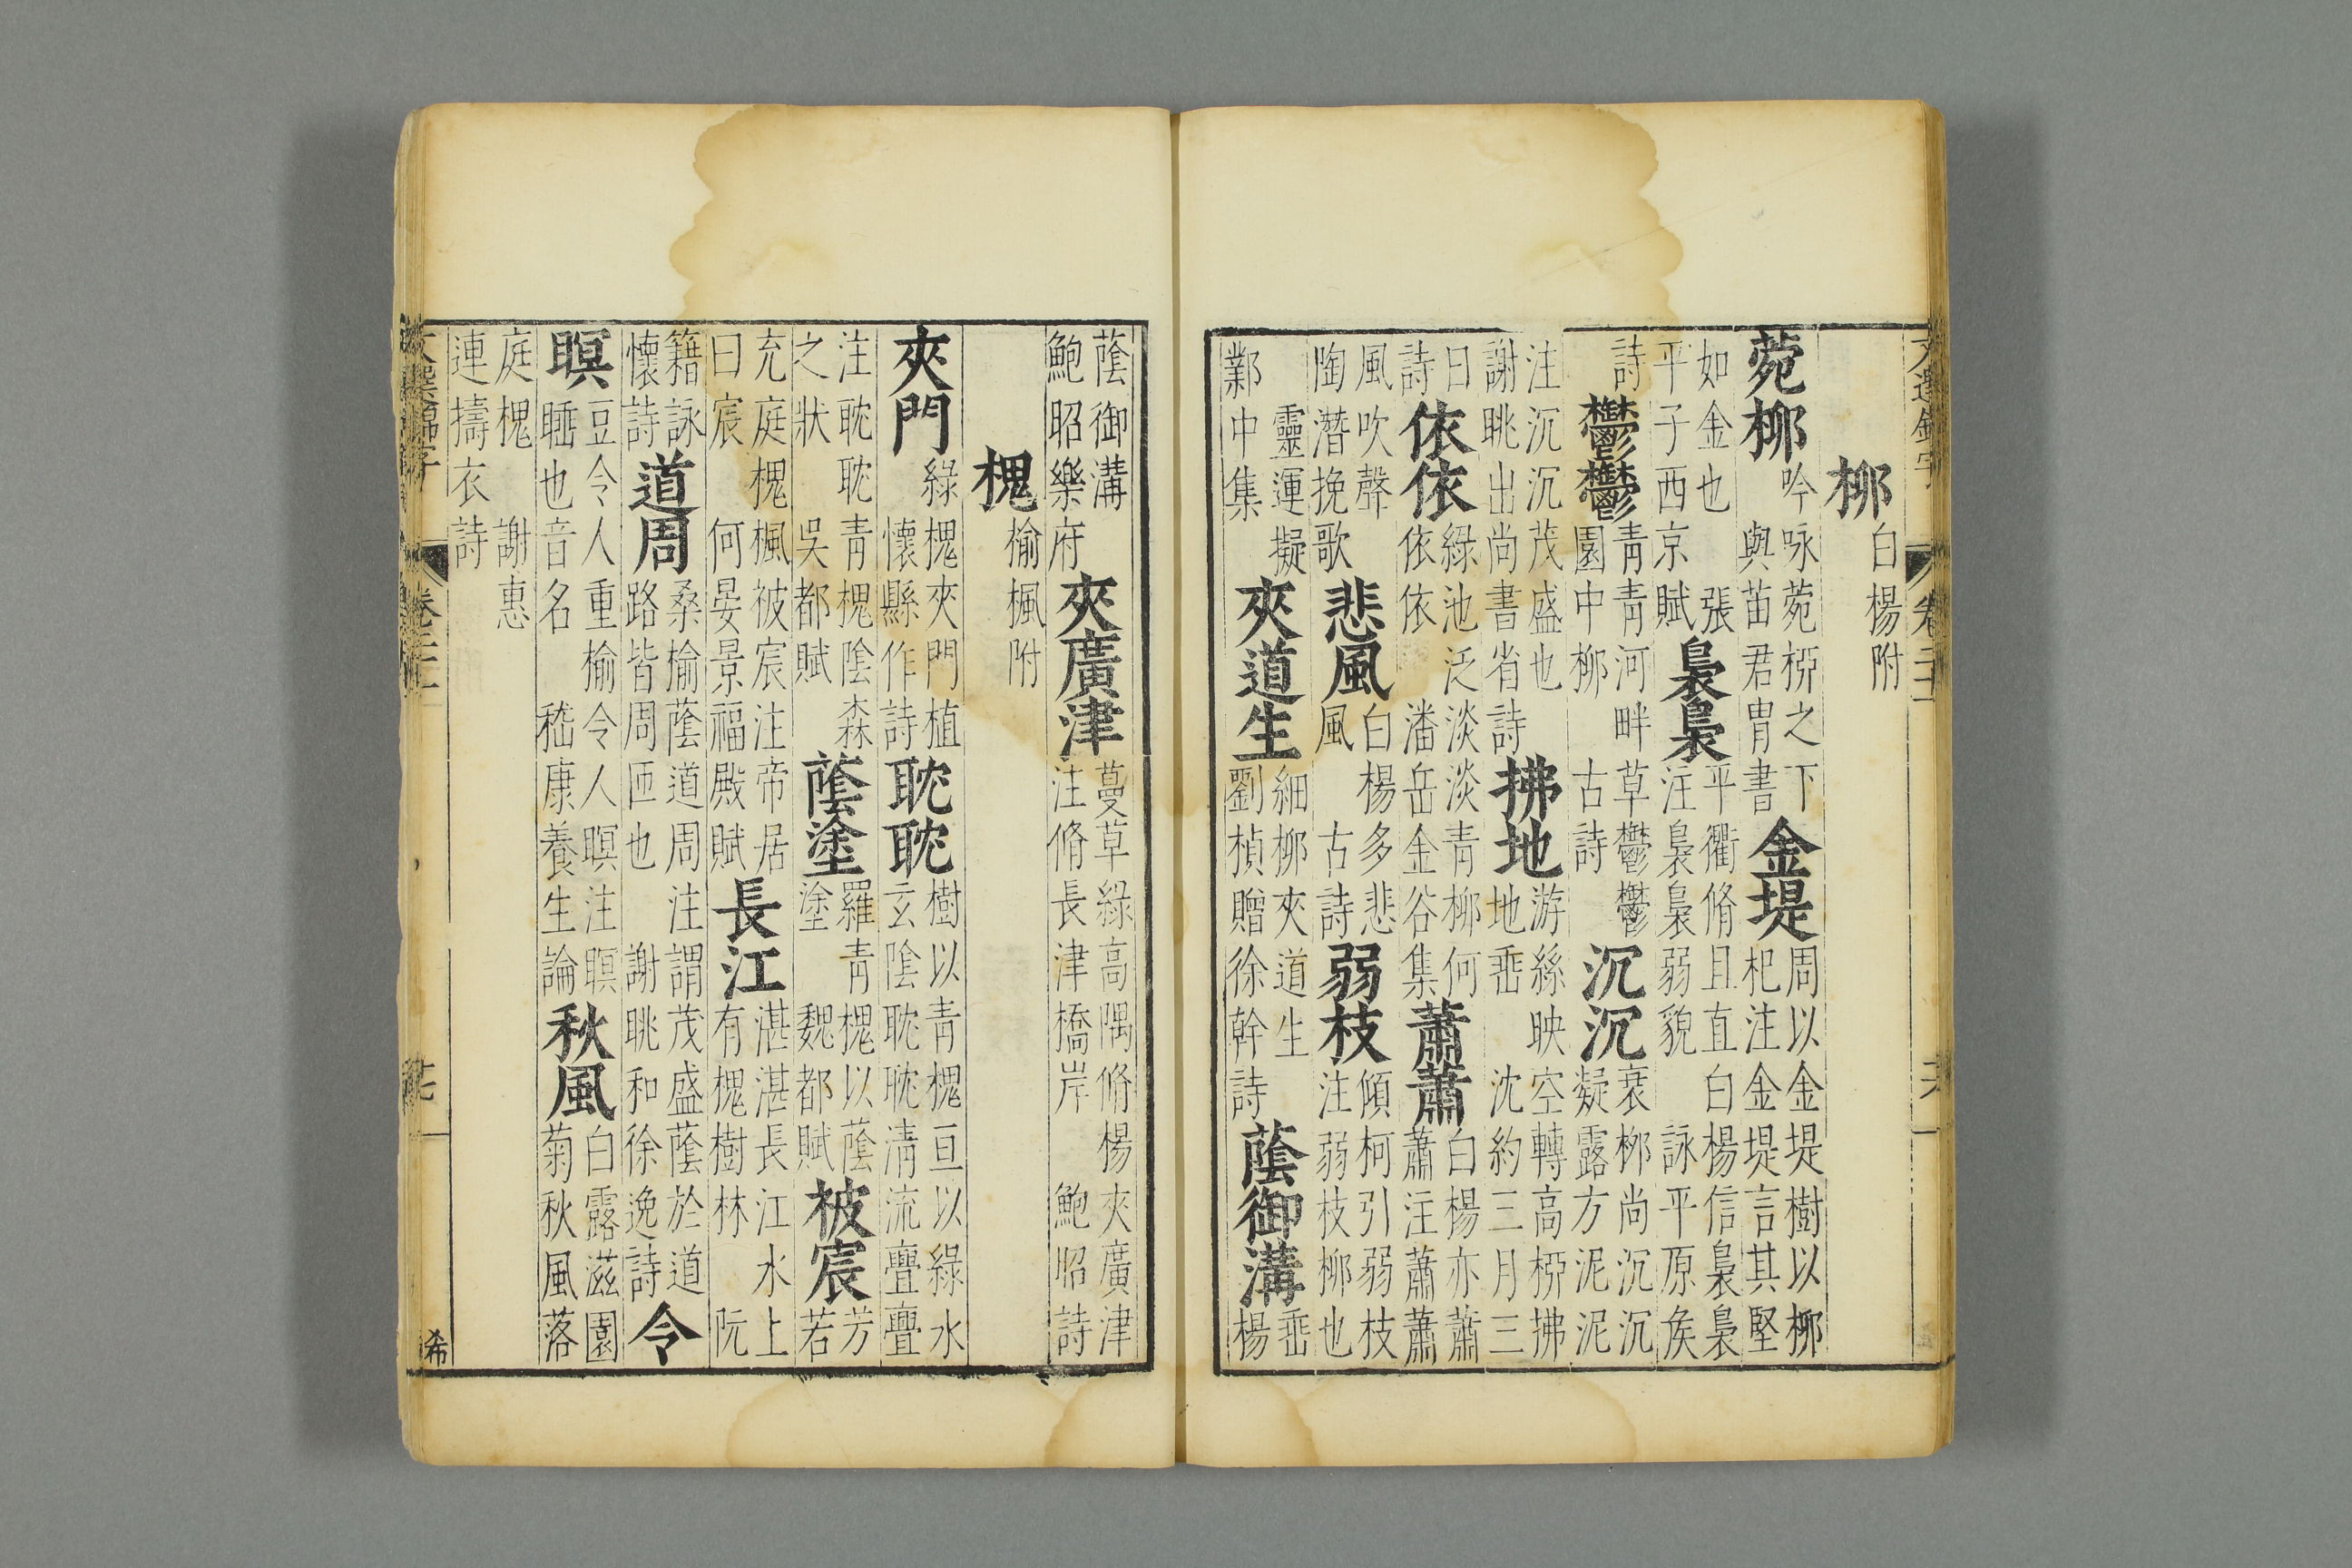 文選錦字 卷二十一
柳白楊附
菀柳吟咏菀桺之下與苗君冑書金堤周以金堤樹以柳杞注金堤言其堅
如金也張平子西京賦裊裊平衢脩且直白楊信裊裊注裊裊弱貌詠平原矦
詩鬱鬱青青河畔草鬱鬱園中柳古詩沉沉衰桺尚沉沉凝露方泥泥
注沉沉茂盛也謝眺出尚書省詩拂地游絲映空轉高桺拂地垂沈約三月三
日詩依依綠池泛淡淡青柳何依依潘岳金谷集蕭蕭白楊亦蕭蕭注蕭蕭
風吹聲陶潛挽歌悲風白楊多悲風古詩弱枝傾柯引弱枝注弱枝柳也
靈運擬鄴中集夾道生細柳夾道生劉楨贈徐幹詩蔭御溝垂楊
蔭御溝鮑昭樂府夾廣津蔓草綠高隅脩楊夾廣津注脩長津橋岸鮑昭詩
槐榆楓附
夾門綠槐夾門植懷縣作詩耽耽樹以青槐亘以綠水玄陰耽耽淸流亹亹
注耽耽青槐陰森之狀吳都賦蔭塗羅青槐以蔭塗魏都賦被宸芳若
充庭槐楓被宸注帝居曰宸何晏景福殿賦長江湛湛長江水上有槐樹林阮
籍詠懷詩道周桑榆蔭道周注謂茂盛蔭於道路皆周匝也謝眺和徐逸詩令
瞑豆令人重榆令人瞑注瞑睡也音名嵇康養生論秋風白露滋園菊秋風落
庭槐謝惠連擣衣詩
卷二十一
希